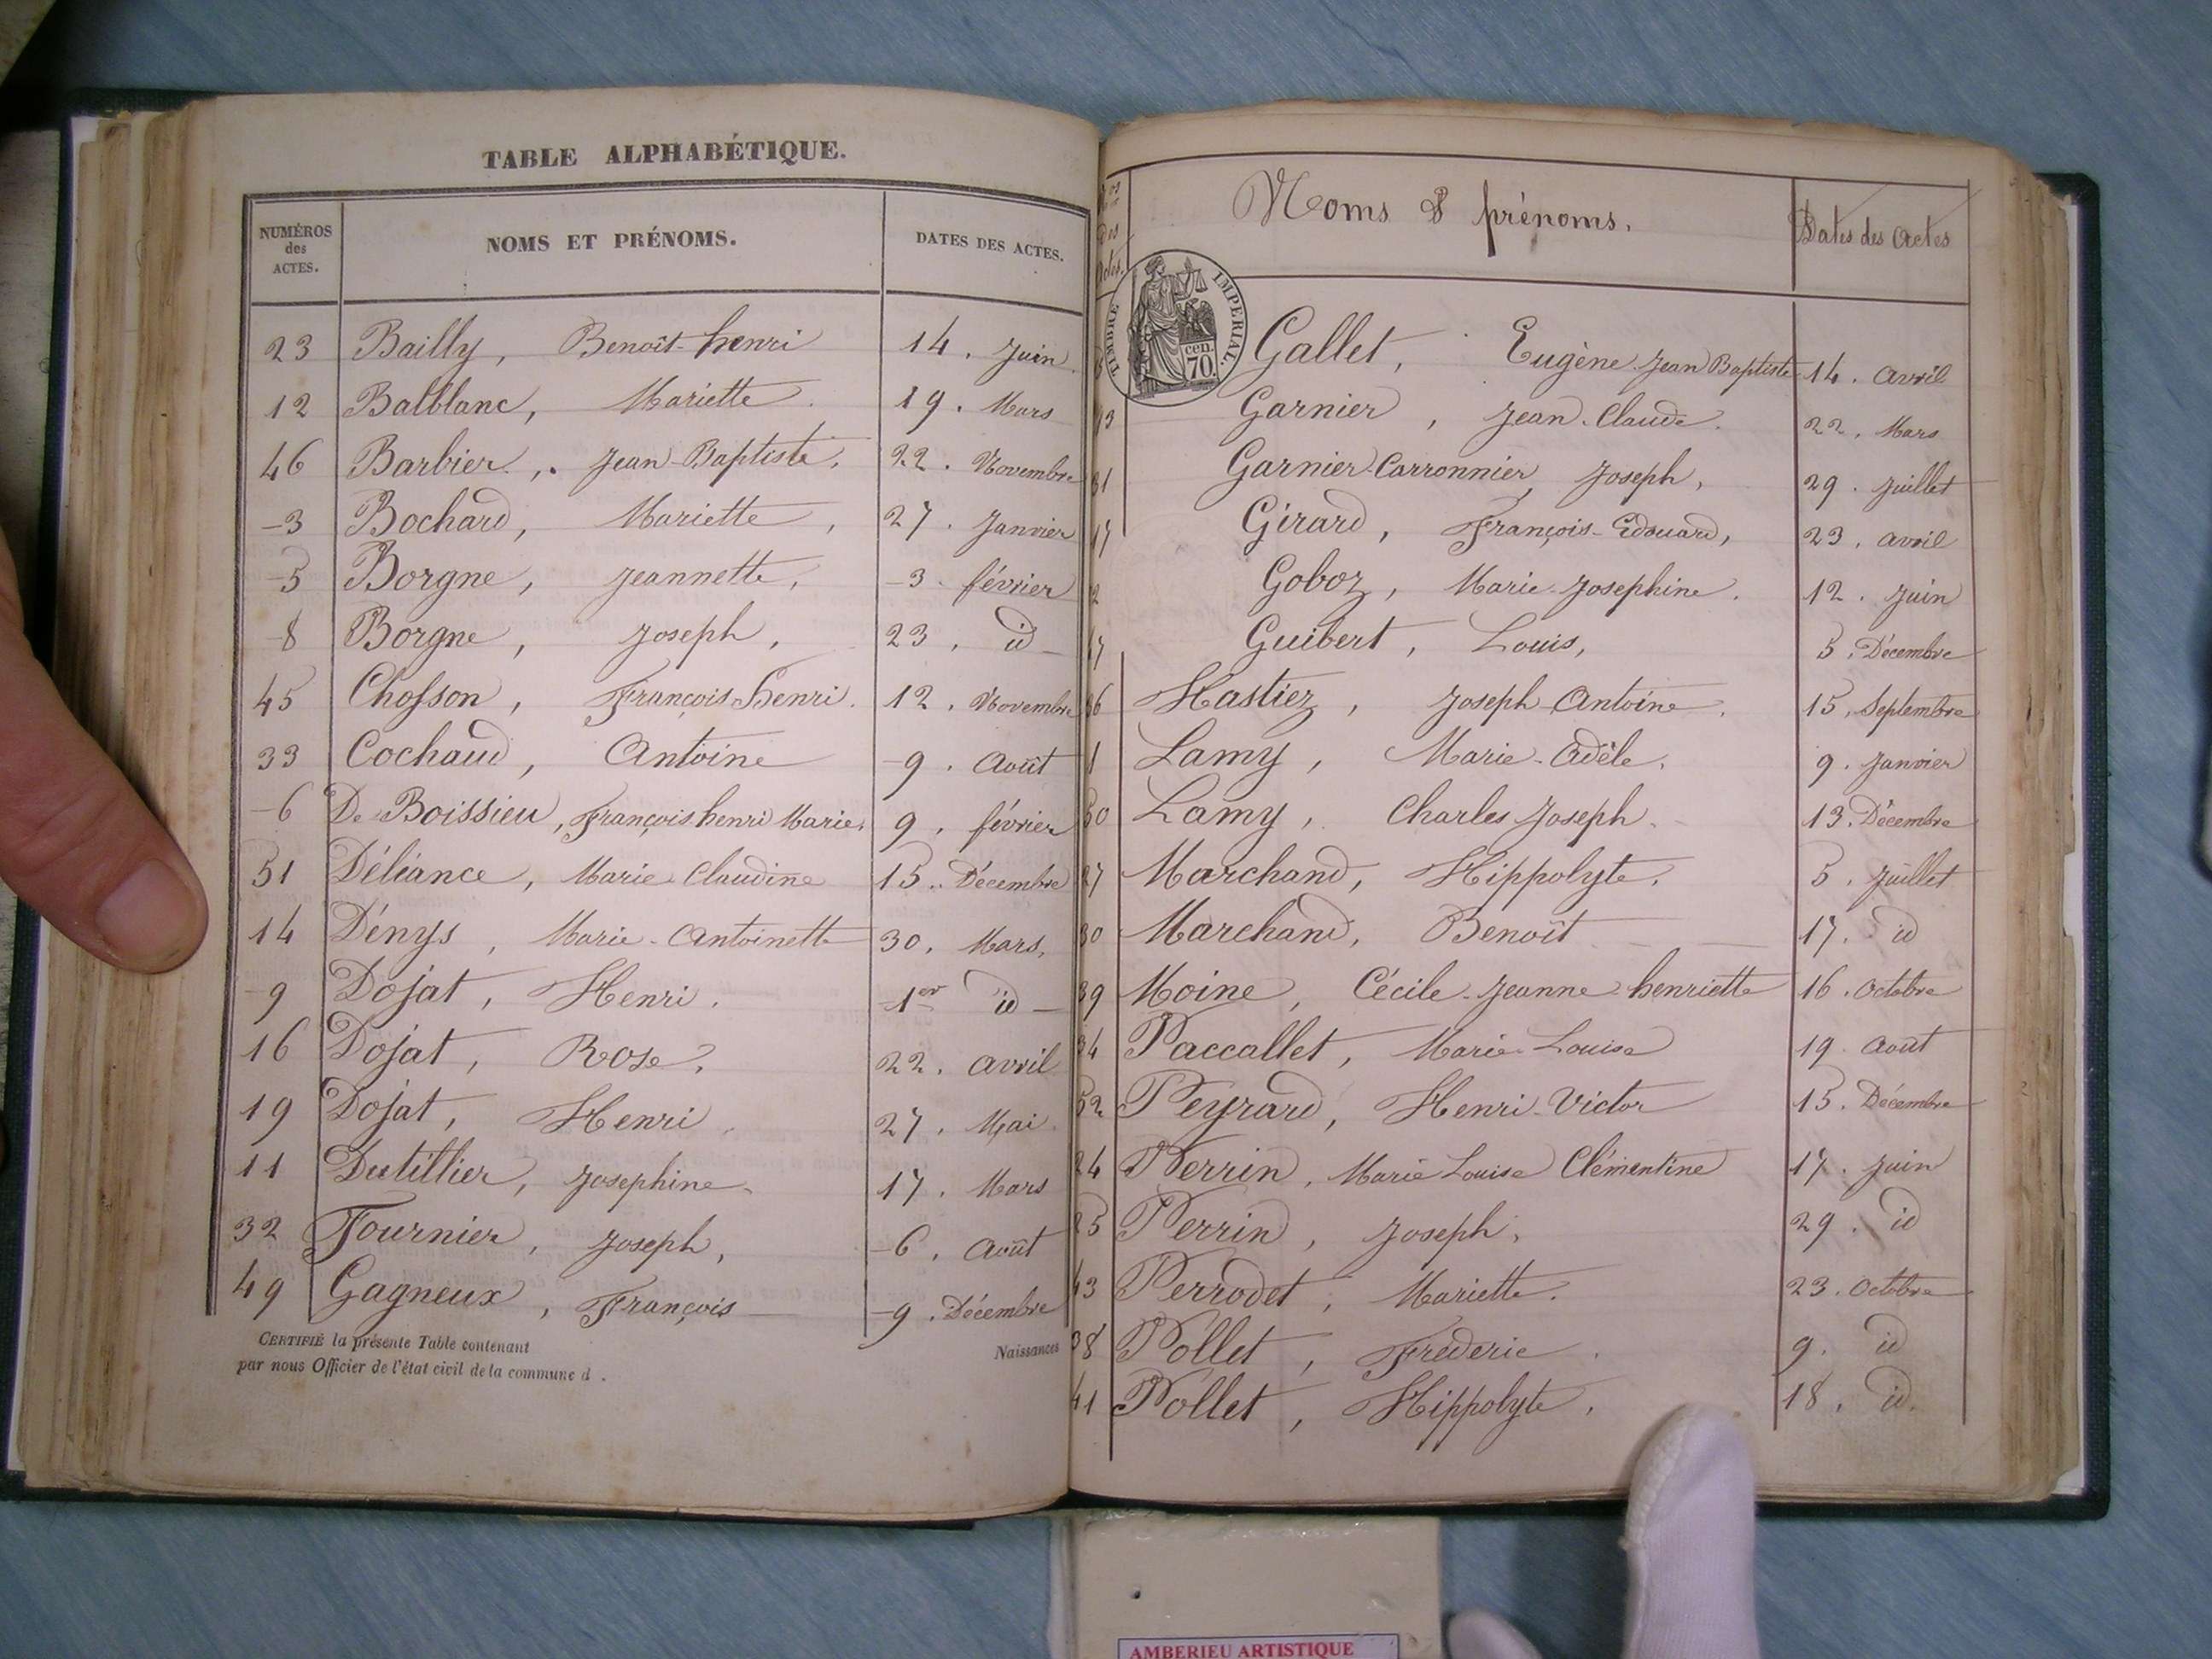 TABLE ALPHABÉTIQUE.
NUMÉROS des ACTES. NOMS ET PRÉNOMS. DATES DES ACTES.
23 Bailly, Benoît-henri 14. Juin
12 Balblanc, Mariette. 19. Mars
46 Barbier, Jean-Baptiste, 22. Novembre
-3 Bochard, Mariette, 27. Janvier
-5 Borgne, Jeannette, -3. février
-8 Borgne, Joseph, 23, id-
45 Chosson, François-henri. 12, Novembre
33 Cochaud, Antoine -9. Août
-6 De Boissieu, François henri Marie, 9, février
51 Déléance, Marie-Claudine 15. Décembre
14 Dénys, Marie-Antoinette 30, Mars,
-9 Dojat, Henri. -1er id-
16 Dojat, Rose, 22. avril
19 Dojat, Henri, 27, Mai
11 Dutillier, Josephine. 17. Mars
32 Fournier, Joseph, -6, Août
49 Gagneux, François -9. Décembre
CERTIFIÉ la présente Table contenant Naissances
par nous Officier de l'état civil de la commune d .
Nos des Actes. Noms & prénoms. Dates des Actes
TIMBRE IMPERIAL.
cen.
70.
Gallet, Eugène Jean Baptiste 14. avril
Garnier, Jean-Claude. 22, Mars
Garnier-Carronnier, Joseph, 29. Juillet
Girard, François-Edouard, 23, avril
Goboz, Marie-Josephine. 12. Juin
Guibert, Louis, 5, Décembre
Hastier, Joseph-Antoine, 15, Septembre
1 Lamy, Marie-Adèle, 9. Janvier
50 Lamy, Charles Joseph. 13. Décembre
27 Marchand, Hippolyte. 5, Juillet
30 Marchand, Benoît 17. id
39 Moine, Cécile-Jeanne-henriette 16. Octobre
34 Paccallet, Marie-Louise 19. août
52 Peyrard, Henri-Victor 15. Décembre
24 Perrin, Marie Louise Clémentine 17. Juin
25 Perrin, Joseph, 29. id
43 Perrodet, Mariette. 23. Octobre
38 Pollet, Fréderic. 9. id
41 Pollet, Hippolyte, 18, id.
AMBERIEU ARTISTIQUE